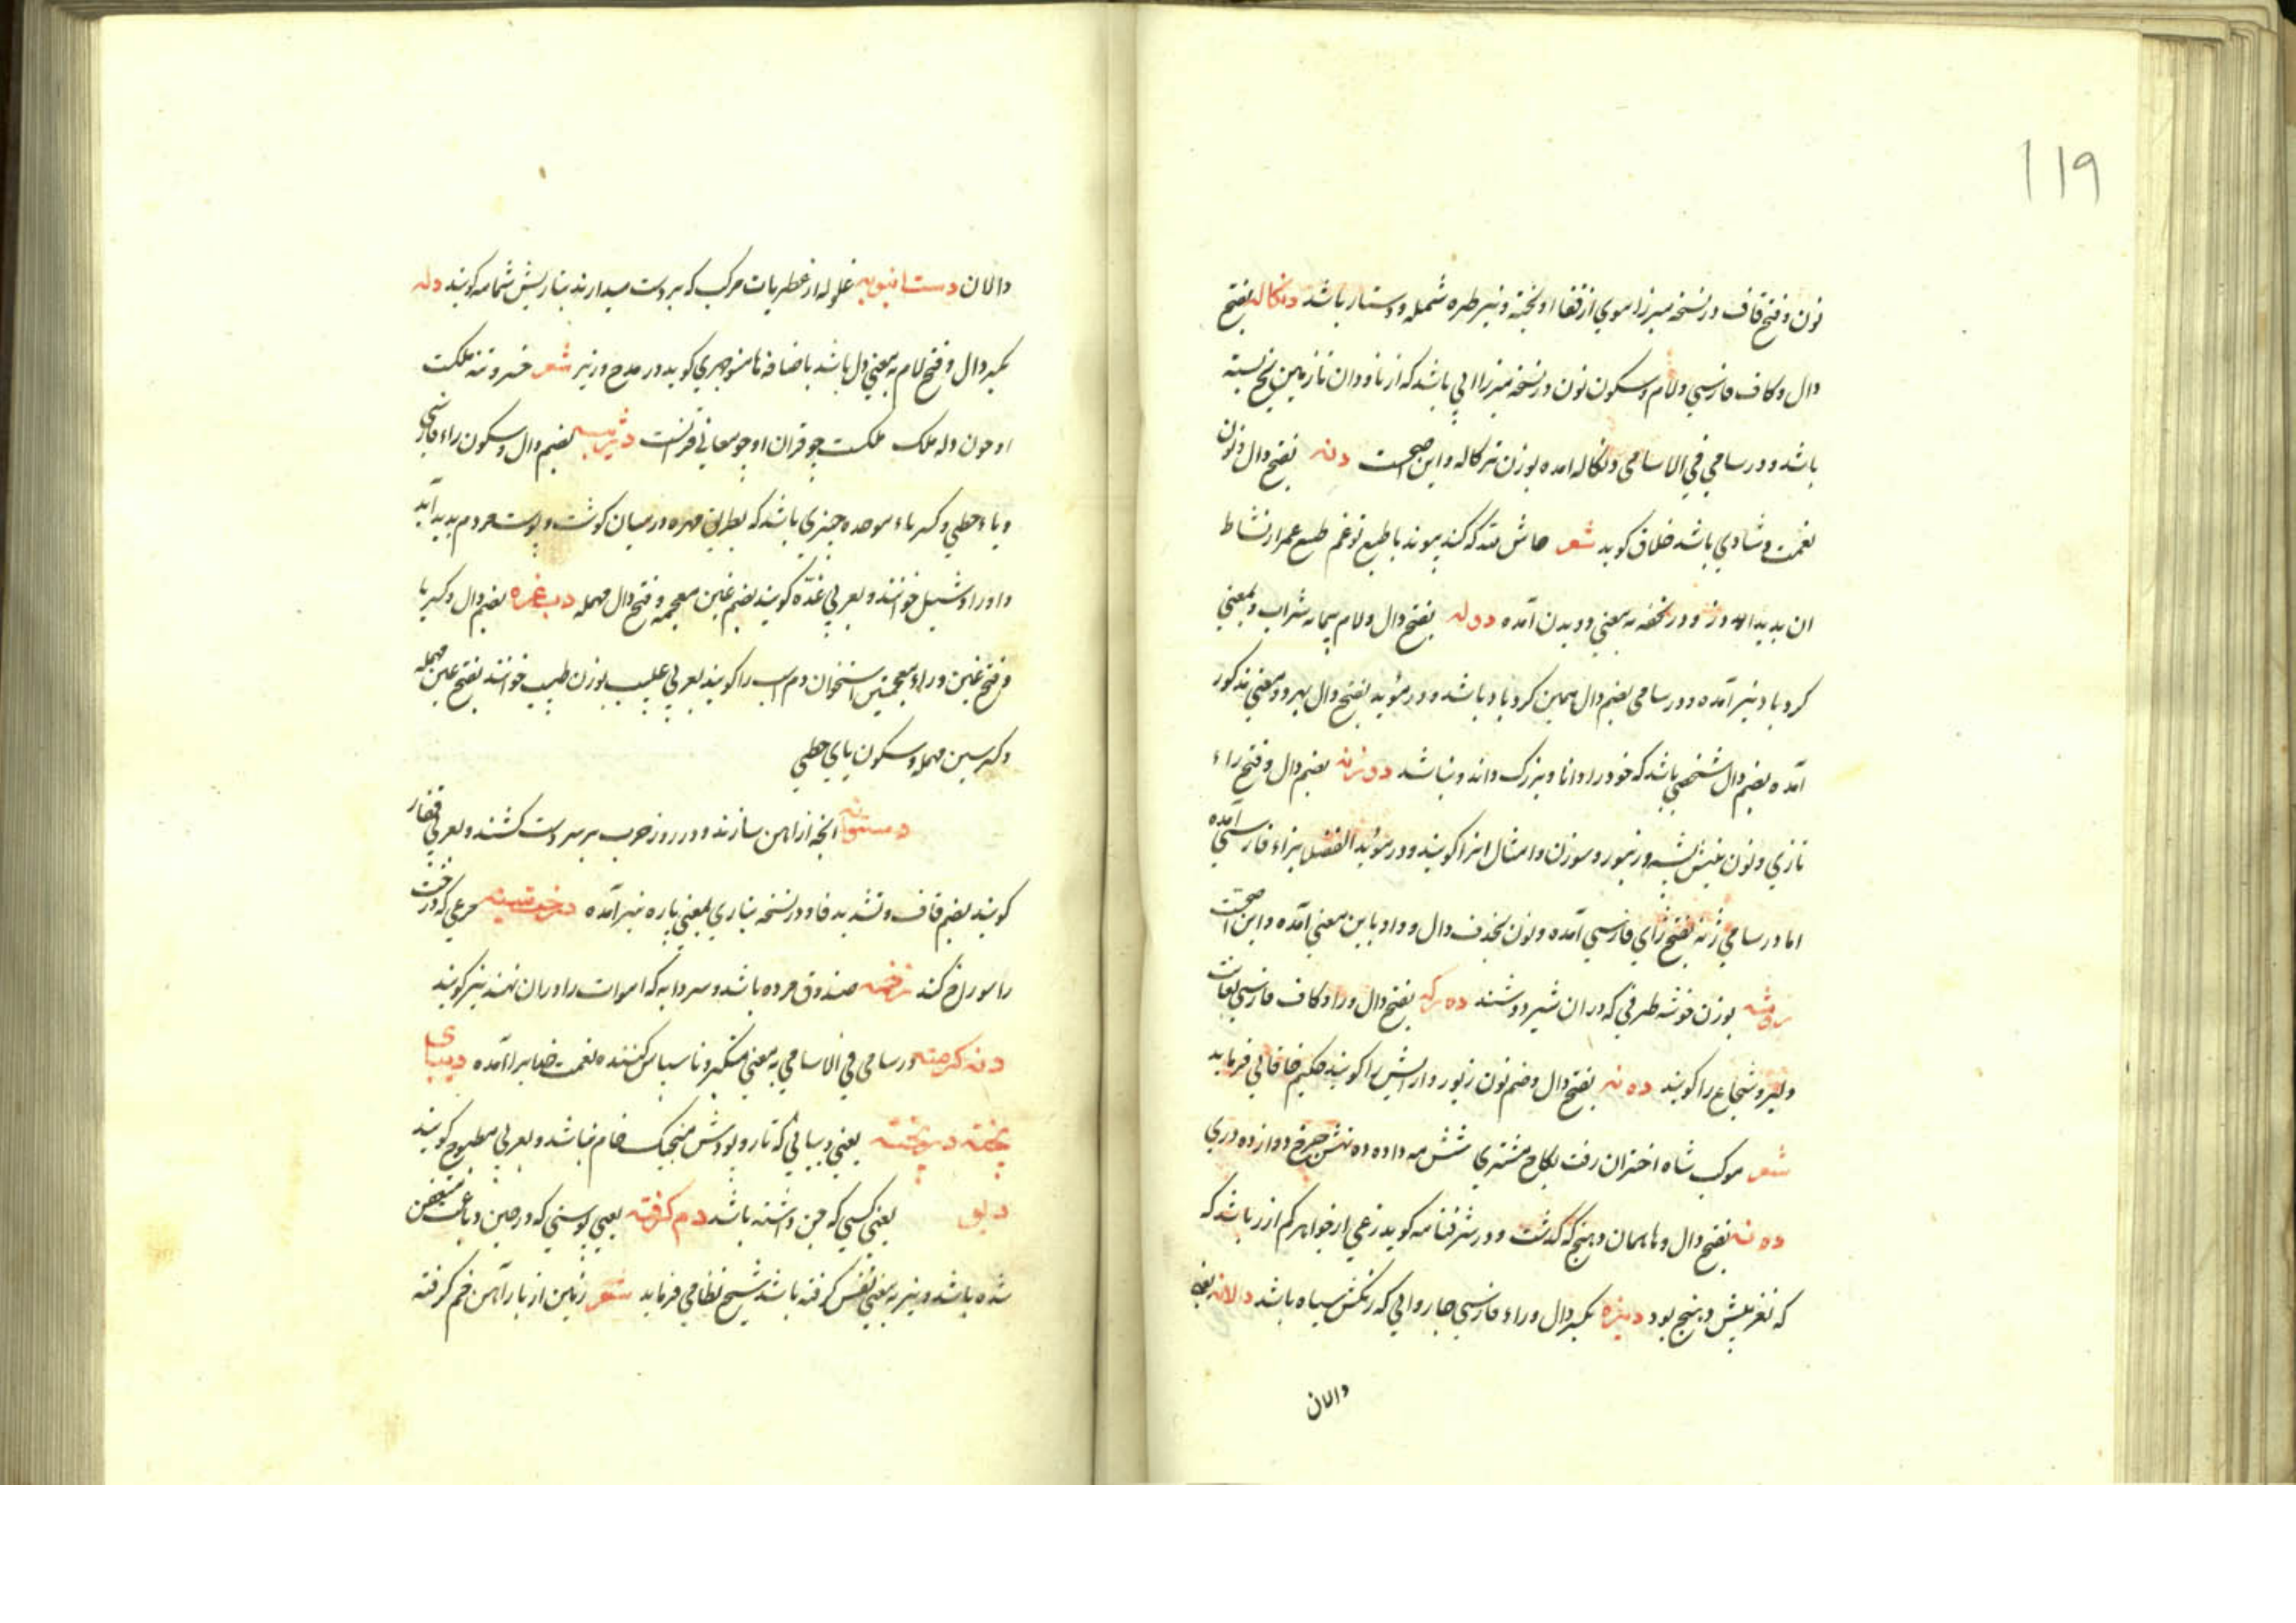 119
نون و فتح قاف در نسخه میرزا موی از قفا اویخته و نیر طره شمله و دستار باشد دنکاله بفتح
دال و کاف فارسی و لام و سکون نون در نسخه میرزا ابی باشد که از ناودان تا زمین یخ بسته
باشد و در سامی فی الاسامی دنکاله امده بوزن نرکاله و این اصحست دنه بفتح دال و نون
نعمت و شادی باشد خلاق کوید شعر حاش لله که کند پیوند با طبع تو غم طبع عمر از نشاط
ان بدید و در تحفه به معنی دویدن آمده دوله بفتح دال و لام پیمانه شراب و بمعنی
کردباد نیر آمده و در سامی بضم دال همین کردباد باشد و در مؤید بفتح دال بهر دو معنی مذکور
آمده بضم دال شخصی باشد که خود را دانا و بزرک داند و نباشد دوزنه بضم دال و فتح راء
تازی و نون نیش پشه و زنبور و سوزن و امثال انرا کویند و در مؤید الفضلا بزاء فارسی آمده
اما در سامی ژنه بفتح ژای فارسی آمده و نون بحذف دال و واو باین معنی آمده و این اصحست
دوشه بوزن خوشه ظرفی که در ان شیر دوشند ده رکه بفتح دال و را و کاف فارسی بغایت
دلیر و شجاع را کویند ده نه بفتح دال و ضم نون زیور و ارایش را کویند حکیم خاقانی فرماید
شعر موکب شاه اختران رفت بکاخ مشتری شش مه داده ده نهش چرخ دوازده دری
ده نه بفتح دال و ها همان دهنج که گذشت و در شرفنامه کوید نوعی از جواهر کم از زر باشد که
که نغزیش دهنج بود دیزه بکسر دال و راء فارسی چاروایی که رنکش سیاه باشد دالانه بفتح
دالان
دالان دستانبویه غلوله از عطریات مرکب که بر دست میدارند بتازیش شمامه کویند دله
بکسر دال و فتح لام به معنی دل باشد باضافه ها منوچهری کوید در مدح وزیر شعر خسرو تنه ملکت
او چون دله ملک ملکت چو قران او چو معانی قرانست دژبیه بضم دال و سکون راء فارسی
و یاء حطی و کسر باء موحده چیزی باشد که بطریق مهره در میان کوشت و پوست مردم بدید آید
و او را دشبیل خوانند و بعربی غدّه کویند بضم غین معجمه و فتح دال مهمله دب غزه بضم دال و کسر با
و فتح غین و راء معجمتین استخوان دم اسب را کویند بعربی عسیب بوزن طبیب خوانند بفتح عین مهمله
و کسر سین مهمله و سکون یای حطی
دستوانه انچه از اهن سازند و در روز حرب بر سر دست کشند و بعربی قفاز
کویند بضم قاف و تشدید فا و در نسخه نیازی بمعنی یاره نیر آمده درخت سنبه مرغی که درخت
را سوراخ کند دخمه صندوق مرده باشد و سردابه که اموات را در ان نهند نیز کویند
دنه کرفته در سامی فی الاسامی به معنی متکبر و ناسپاس کننده نعمت خدایرا آمده دیبای
پخته دیوپخته یعنی دیبایی که تار و پودش منجبک خام نباشد و بعربی مطبوخ کویند
دیو یعنی کسی که جن داشته باشد دم کرفته یعنی پوستی که در حین دباغت متعفن
شده باشد و نیر به معنی نفس کرفته باشد شیخ نظامی فرماید شعر زمین از بار آهن خم کرفته